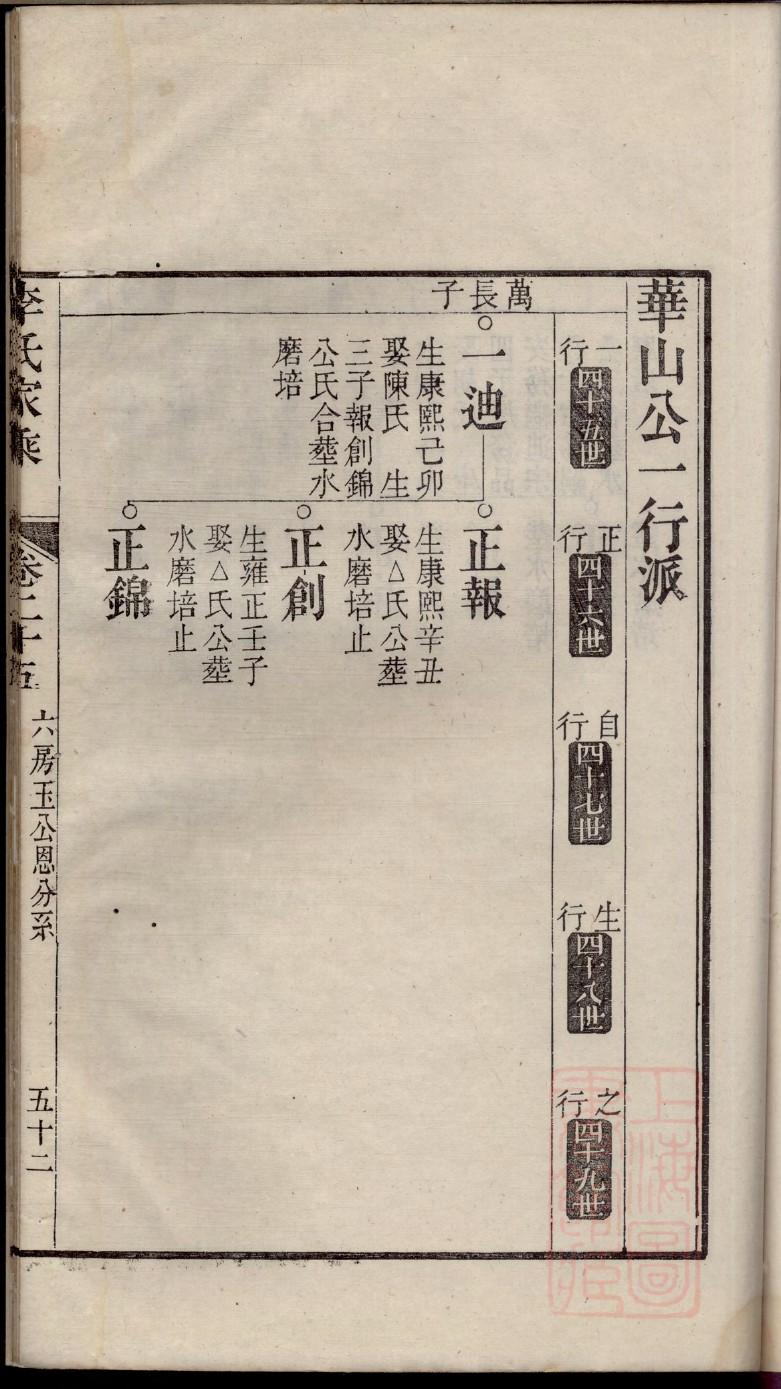 華山公一行派
一行
四十五世
正行
四十六世
自行
四十七世
生行
四十八世
之行
四十九世
萬長子
一迪
生康熙己卯
娶陳氏 生
三子報創錦
公氏合塟水
磨培
正報
生康熙辛丑
娶△氏公塟
水磨培止
正創
生雍正壬子
娶△氏公塟
水磨培止
正錦
李氏家乘
卷二十五
六房玉公恩分系
五十二
上海圖